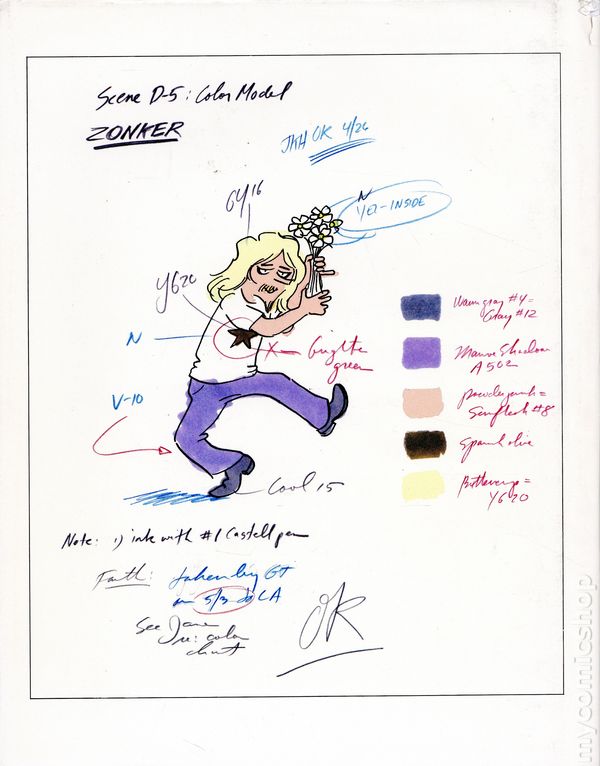 Scene D-5: Color Model
ZONKER
JKH OK 4/26
GY16
N
YEL-INSIDE
YG20
N
X — brighter green
V-10
Warm gray #4 =
Gray #12
Mauve Shadow
A 502
powder pink =
Sunflesh #8
Spanish olive
Buttercup =
YG20
Cool 15
Note: 1) ink with #1 Castell pen
Faith: taken by GT
on 5/3 to LA
See Jane
re: color
chart
OK
mycomicshop